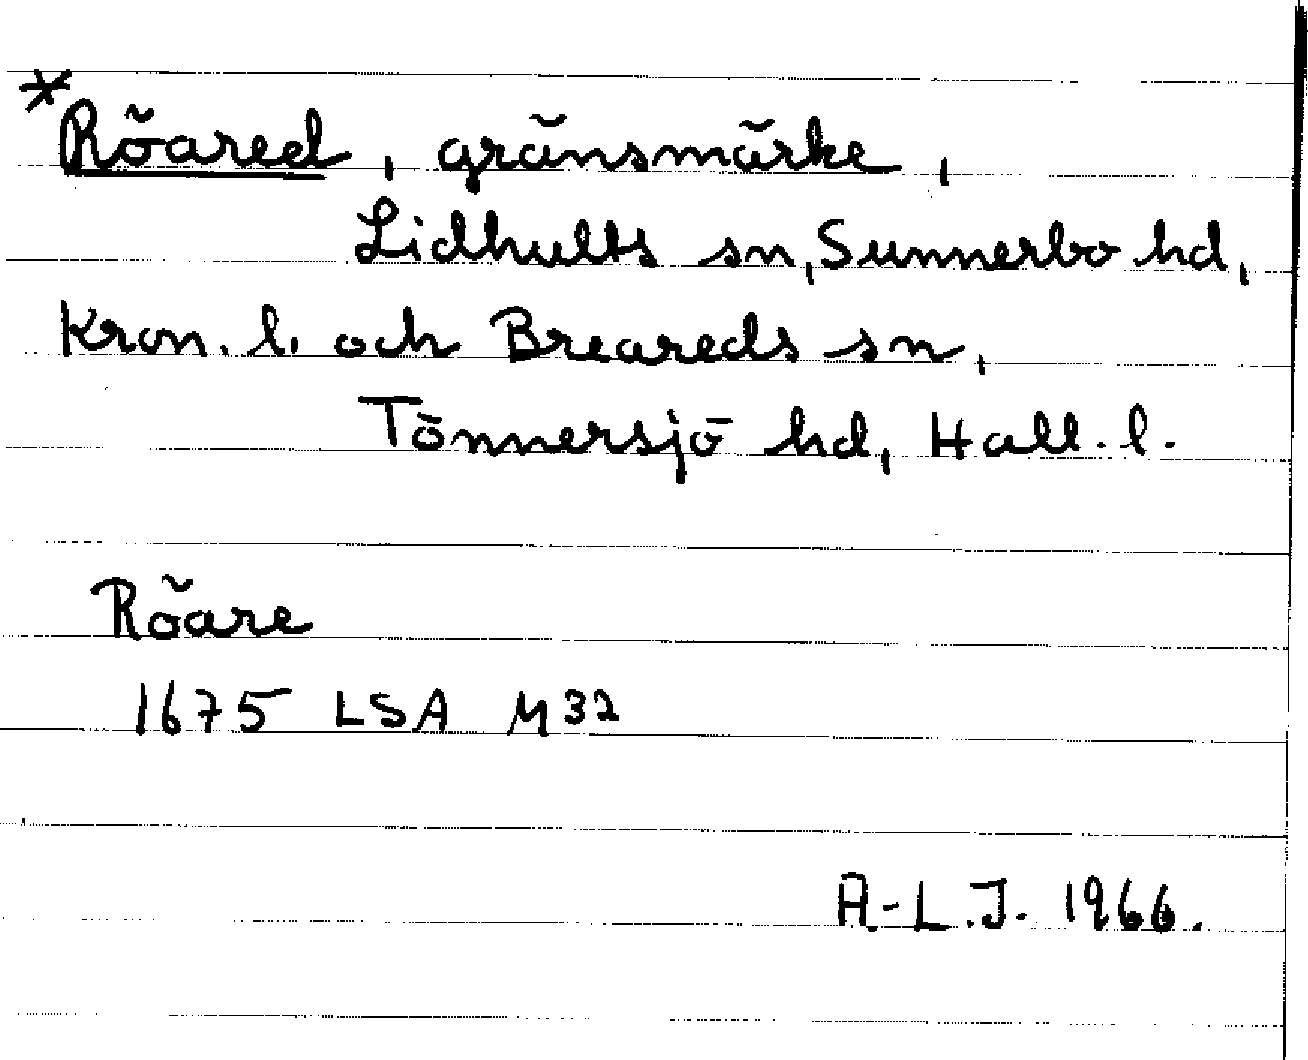 *Röared, gränsmärke,
Lidhults sn, Sunnerbo hd,
Kron. l. och Breareds sn,
Tönnersjö hd, Hall. l.
Röare
1675 LSA M32
A-L.J. 1966.